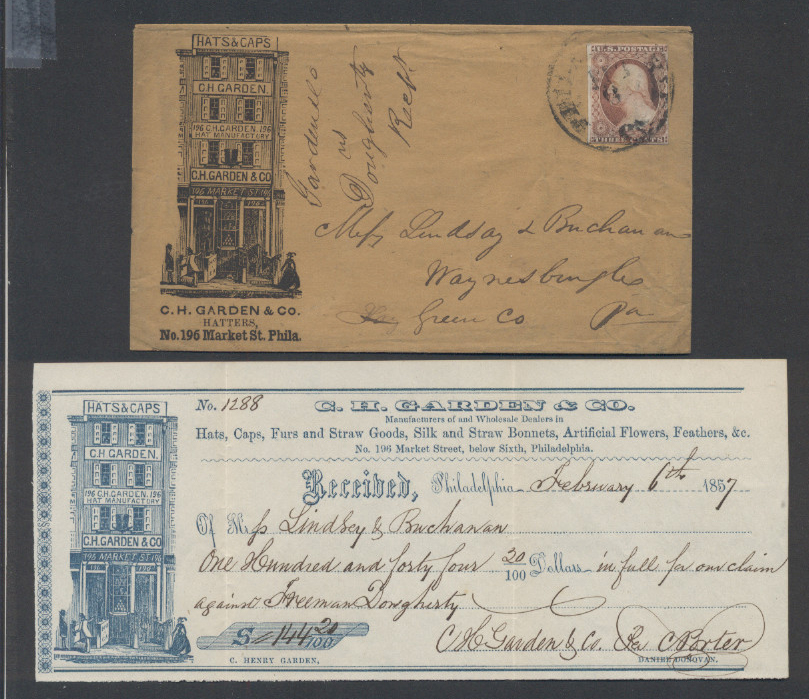 HATS & CAPS
C.H. GARDEN
196 C.H. GARDEN. 196
HAT MANUFACTORY
C.H. GARDEN & CO
196 MARKET ST 196
C. H. GARDEN & CO.
HATTERS,
No. 196 Market St. Phila.
Garden & Co
vs
Dougherty
Rect
U.S. POSTAGE
Messs Lindsay & Buchanan
Waynesburgh
Green Co Pa
HATS & CAPS
C.H. GARDEN.
196 C.H. GARDEN. 196
HAT MANUFACTORY
C.H. GARDEN & CO
196 MARKET ST 196
No. 1288 C. H. GARDEN & CO.
Manufacturers of and Wholesale Dealers in
Hats, Caps, Furs and Straw Goods, Silk and Straw Bonnets, Artificial Flowers, Feathers, &c.
No. 196 Market Street, below Sixth, Philadelphia.
Received, Philadelphia February 6th 1857
Of Mess Lindsey & Buchanan
One Hundred and forty four 20/100 Dollars in full for our claim
against Freeman Dougherty
$144 20/100 C H Garden & Co. Per C Porter
C. HENRY GARDEN. DANIEL DONOVAN.